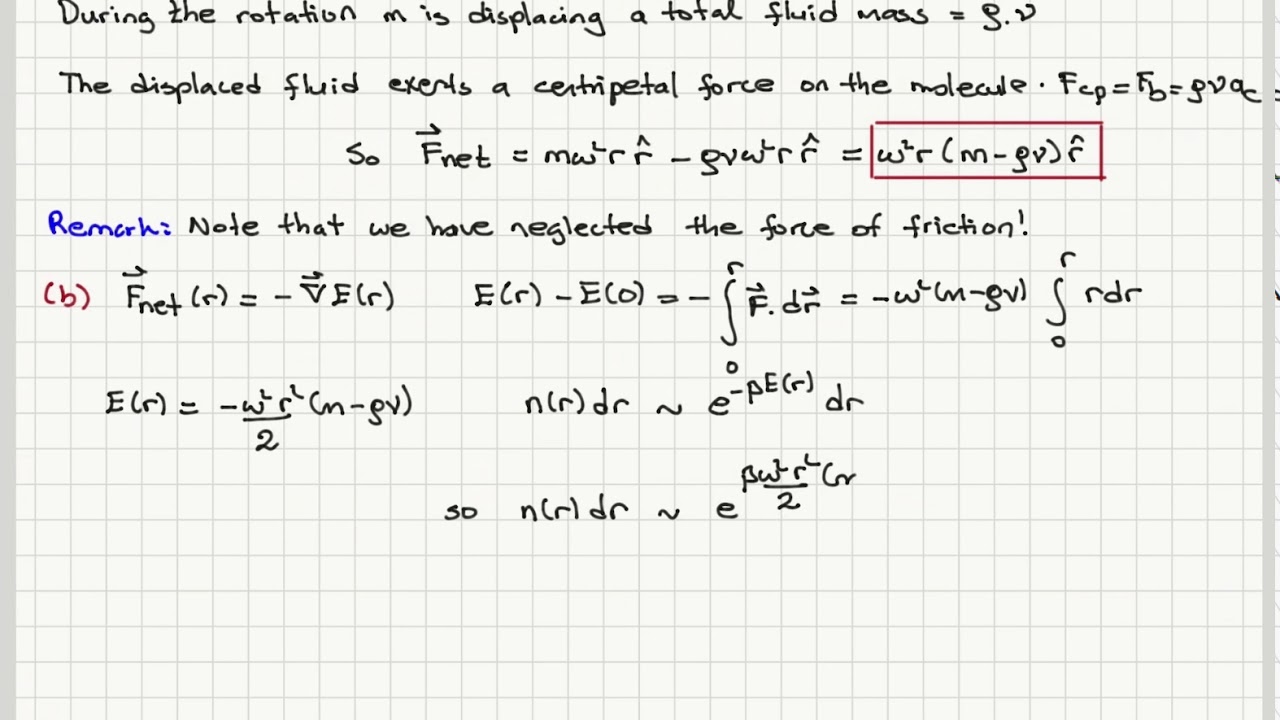 During the rotation m is displacing a total fluid mass = ρ.v
The displaced fluid exerts a centripetal force on the molecule. F_cp = F_b = ρva_c =
So F⃗_net = mω²r r̂ - ρvω²r r̂ = ω²r (m-ρv) r̂
Remark: Note that we have neglected the force of friction!
(b) F⃗_net (r) = - ∇⃗ E(r) E(r) - E(0) = - ∫₀^r F⃗. dr⃗ = -ω²(m-ρv) ∫₀^r r dr
E(r) = -ω²r²/2 (m-ρv) n(r) dr ~ e^{-βE(r)} dr
so n(r) dr ~ e^{βω²r²/2 (